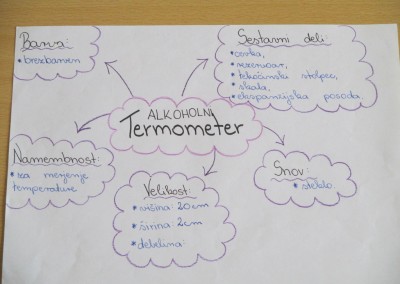 Barva:
• brezbarven
Sestavni deli:
• cevka,
• rezervoar,
• tekočinski stolpec,
• skala,
• ekspanzijska posoda.
ALKOHOLNI
Termometer
Namembnost:
• za merjenje
temperature
Velikost:
• višina: 20cm
• širina: 2cm
• debelina:
Snov:
• steklo